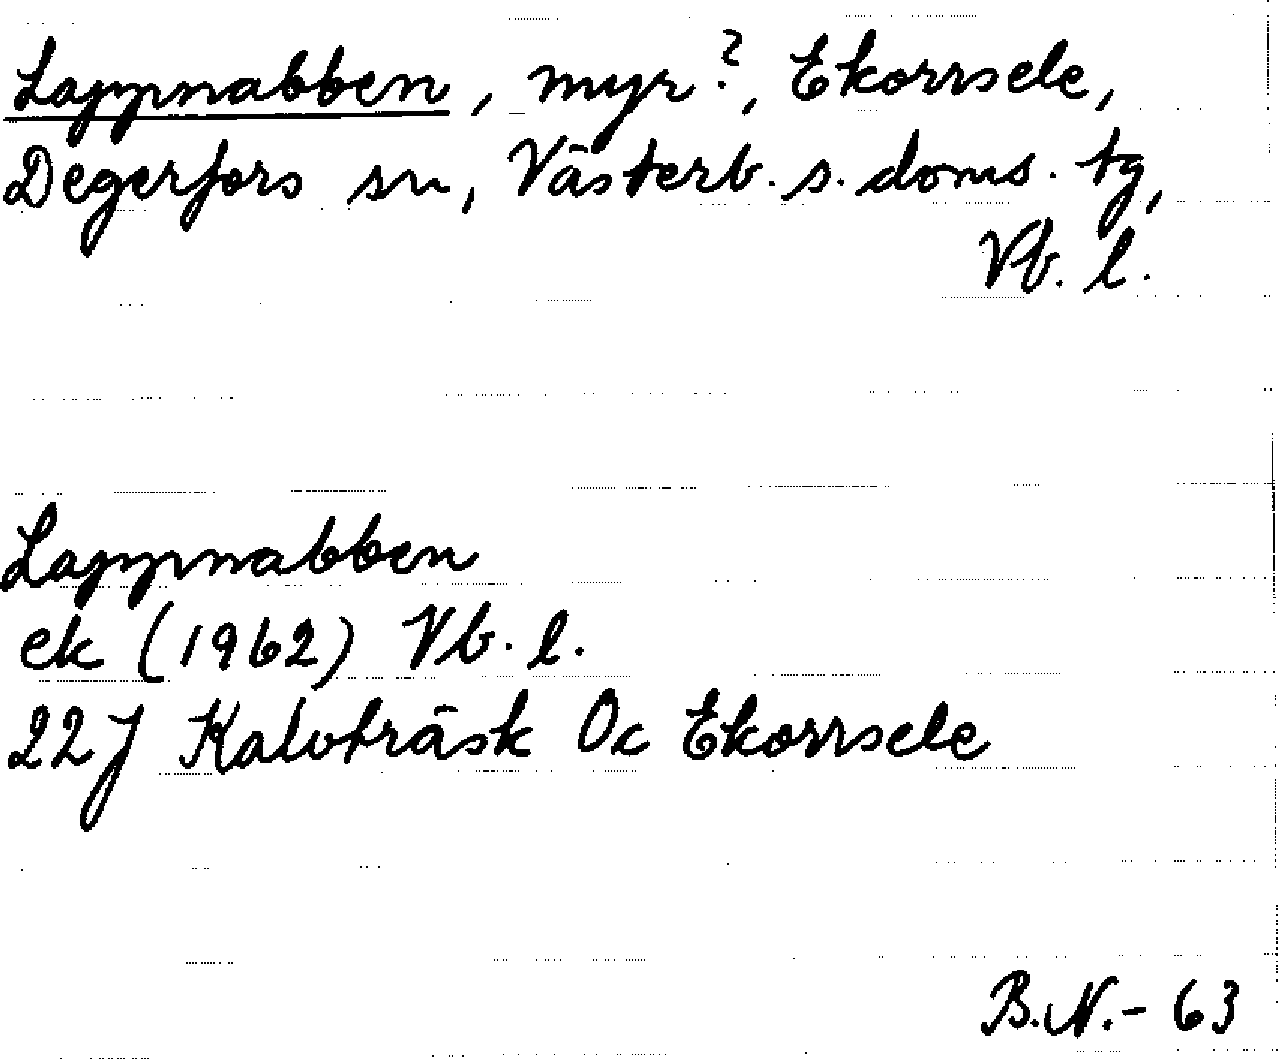 Lappnabben, myr?, Ekorrsele,
Degerfors sn, Västerb. s. doms. tg,
Vb. l.
Lappnabben
ek (1962) Vb. l.
22J Kalvträsk 0c Ekorrsele
B.N.- 63